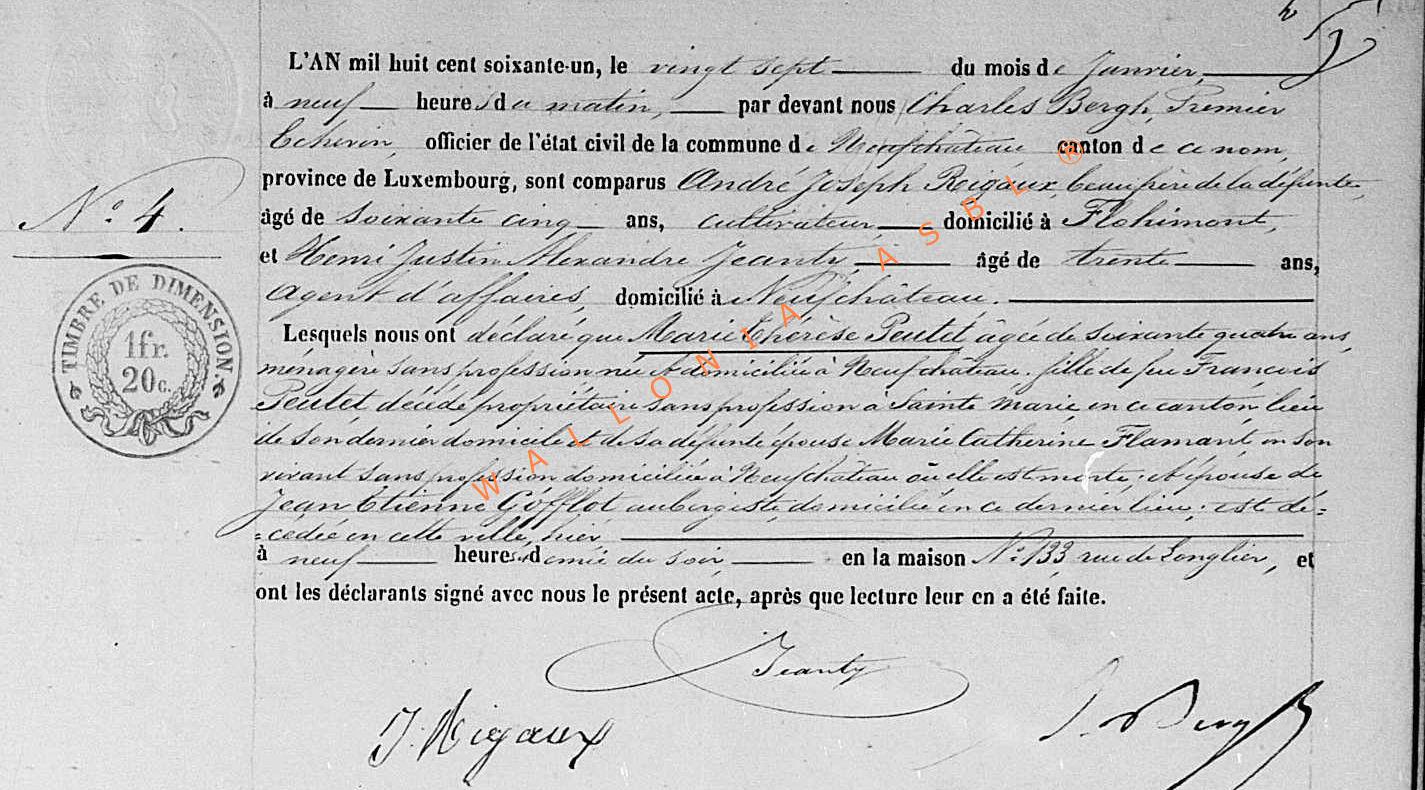 L'AN mil huit cent soixante-un, le vingt sept du mois de Janvier,
à neuf heures du matin, par devant nous Charles Bergh, Premier
Echevin, officier de l'état civil de la commune de Neufchâteau canton de ce nom,
province de Luxembourg, sont comparus André Joseph Rigaux, beau père de la défunte,
N.° 4.
âgé de soixante cinq ans, cultivateur, domicilié à Flohimont,
et Henri Justin Alexandre Jeanty, âgé de trente ans,
agent d'affaires, domicilié à Neufchâteau.
TIMBRE DE DIMENSION.
1fr.
20c.
Lesquels nous ont déclaré que Marie Thérèse Peutet, âgée de soixante quatre ans,
ménagère sans profession née et domiciliée à Neufchâteau, fille de feu François
Peutet décédé propriétaire sans profession à Sainte Marie, en ce canton, lieu
de son dernier domicile et de sa défunte épouse Marie Catherine Flamant, en son
vivant sans profession domiciliée à Neufchâteau où elle est morte; et épouse de
Jean Etienne Gofflot, aubergiste, domicilié en ce dernier lieu; est dé=
=cédée en cette ville, hier
à neuf heures demie du soir, en la maison N.° 133, rue de Longlier, et
ont les déclarants signé avec nous le présent acte, après que lecture leur en a été faite.
Jeanty
J. Rigaux
Bergh
WALLONIA ASBL ®